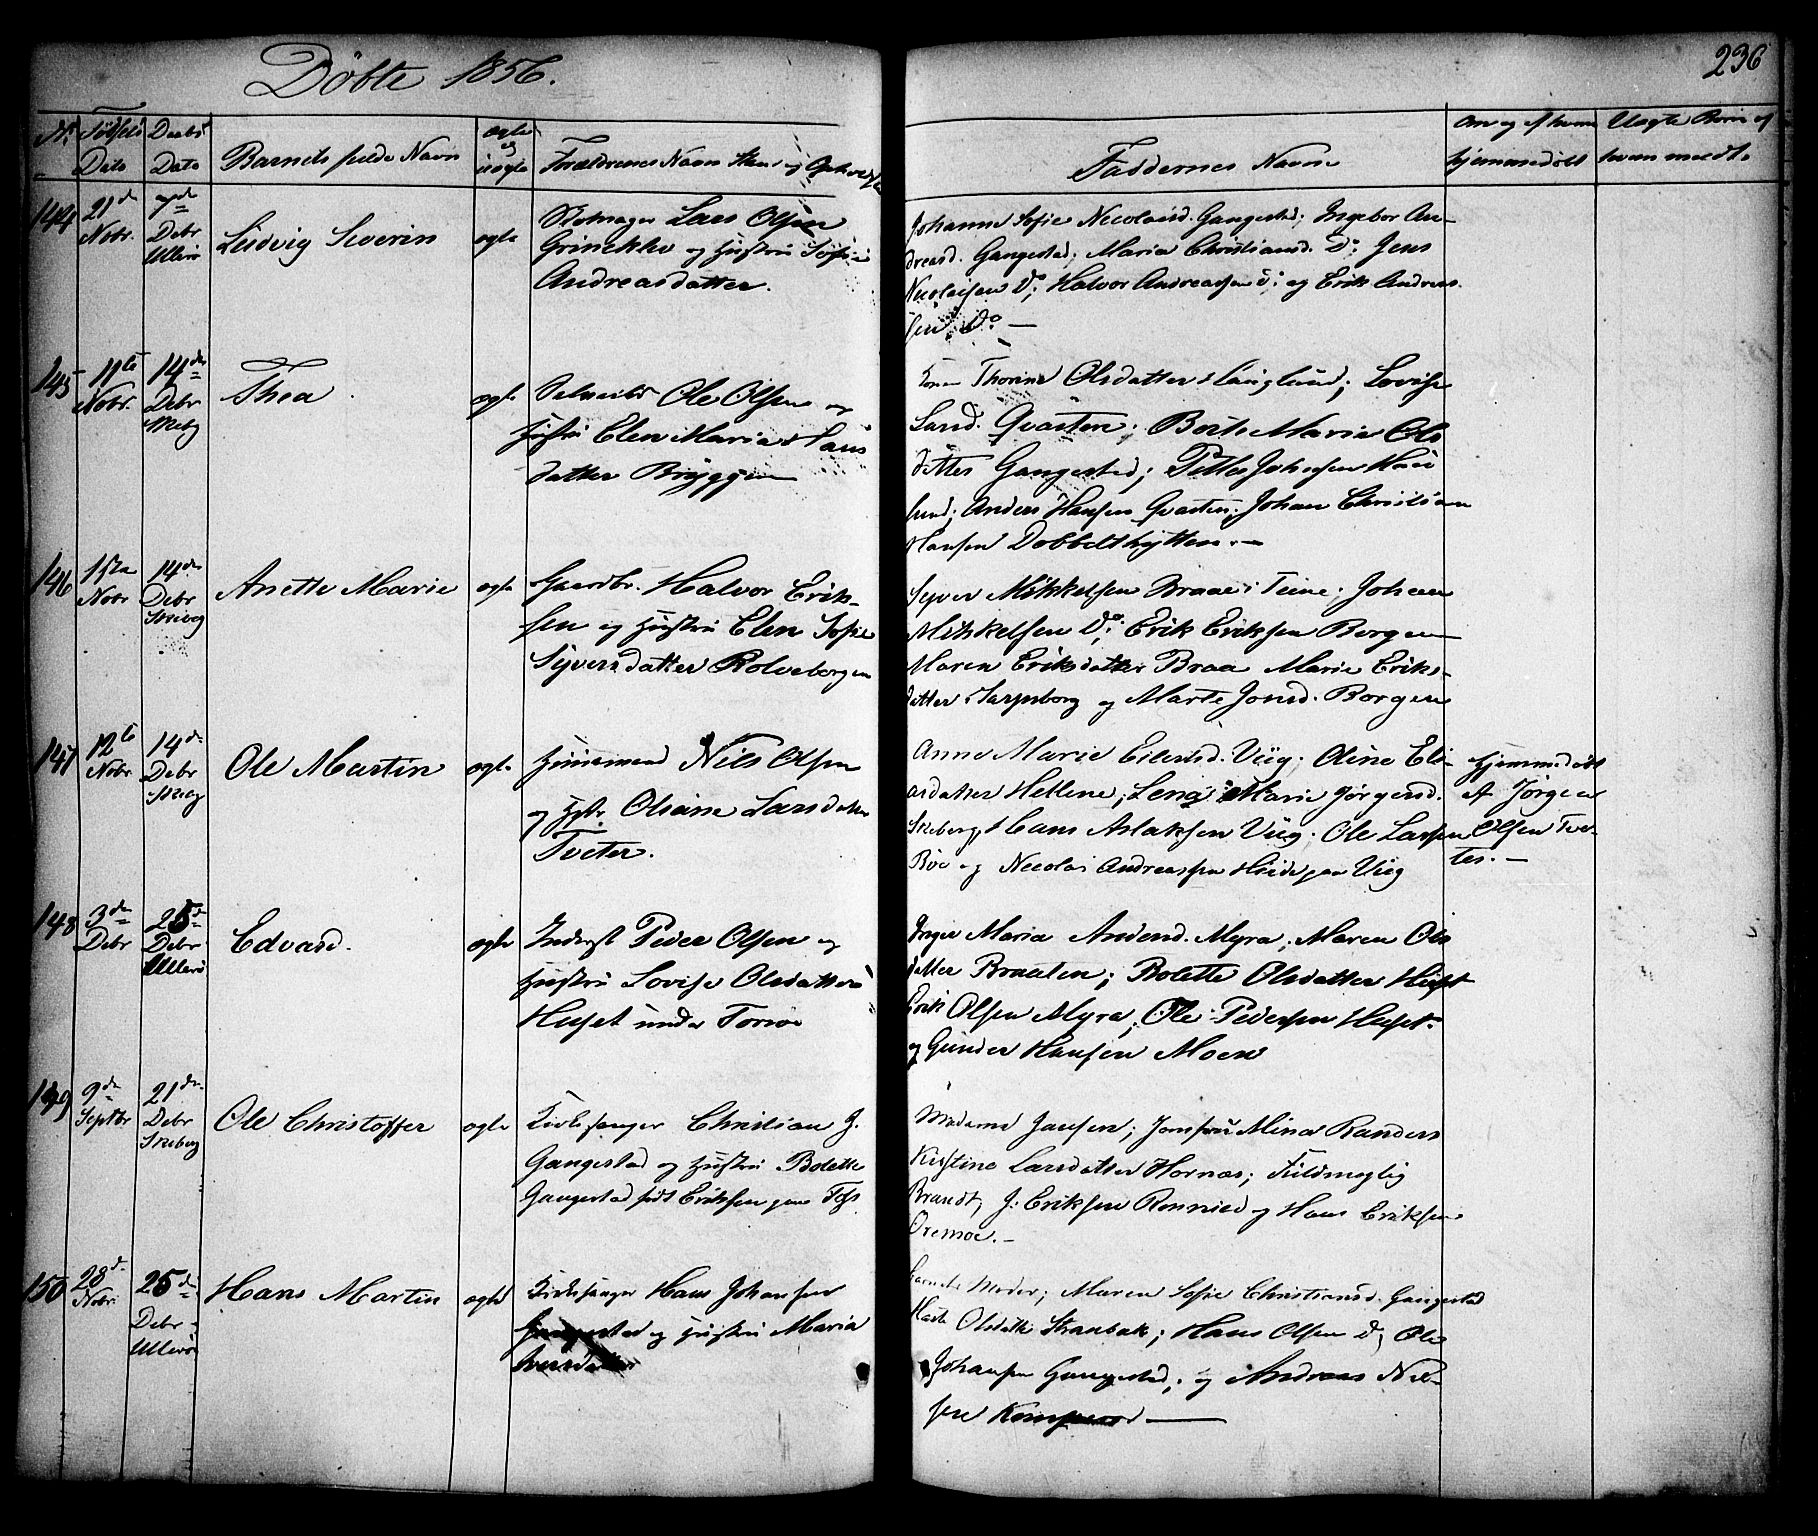 Döbte 1856.
236
No Fødsels Dato
Daabs Dato
Barnets fulde Navn
ægte og uægte
Forældrenes Navn Stand og Opholds
Faddernes Navn
Om og af hvem hjemmedøbt
Uægte Børn af hvem meldt.
144 21de Novbr. 7de Debr Ullerö
Ludvig Severin
ægte
Lars Olsen
Grinekke og Hustru Sofie
Andreasdatter.
Johanne Sofie Nicolaisd. Gangestad; Ingebor An-
dreasd. Gangestad; Maria Christiansd. Do; Jens
Nicolaisen Do; Halvor Andreassen Do; og Erik Andreas
sen Do —
145 11te Novbr. 14de Debr Skeby
Thea
ægte
Selveier Ole Olsen og
Hustru Elen Maria Hans
datter Bryggen
Kone Thorine Olsdatter Hauglund; Lovise
Larsd. Qvasten; Berte Maria Ols
datter Gangestad; Petter Johansen Hau
lund; Anders Hansen Qvasten; Johan Christian
Hansen Dobbelthytten. —
146 15de Novbr 14de Debr Skeberg
Anette Marie
ægte
Gaardbr. Halvor Erik-
sen og Hustru Elen Sofie
Syversdatter Rolvsborgen
Syver Mikkelsen Braae i Tune; Johan
Mikkelsen Do; Erik Eriksen Borgen
Maren Eriksdatter Braa Marie Eriks-
datter Sarpsborg og Marte Jonsd. Borgen
147 12te Novbr 14de Debr Skeberg
Ole Martin
ægte
Huusmand Nils Olsen
og Hstr. Olsine Larsdatter
Tveter.
Anne Marie Eilertsd. Viig; Oline Eli-
asdatter Hellene; Lena Marie Jørgensd.
Skeberg; Hans Aslaksen Viig; Ole Larsen
Böe og Nicolai Andreassen Hiide paa Viig
Hjemmedøbt
af Jørgen
Olsen Tve-
ter. —
148 3de Debr 26de Debr Ullerö
Edvard.
ægte
Inderst Peder Olsen og
Hustru Lovise Olsdatter
Huset under Torsøe
Inger Maria Andersd. Myra; Maren Ols
datter Braaten; Bolette Olsdatter Huset
Erik Olsen Myra; Ole Pedersen Huset.
og Gunder Hansen Moen
149 9de Septbr 21de Debr Skeberg
Ole Christoffer
ægte
Kirkesanger Christian J.
Gangestad og Hustru Bolette
Gangestad født Eriksen paa
Madame Jansen; Jomfru Mina Randers
Kistine Larsdatter Hornæs; Fuldmægtig
Brandt, J. Eriksen Ronnied og Hans Eriksen
Oremoe. —
150 28de Novbr. 26de Debr Ullerö
Hans Martin
ægte
Kirkesanger Hans Johansen
Gangestad og Hustru Maria
Iversdatter
Barnets Moder; Maren Sofie Christiansd. Gangestad
Olsdatt Straabak; Hans Olsen Do; Ole
Johansen Gangestad; og Andreas Nil-
sen —